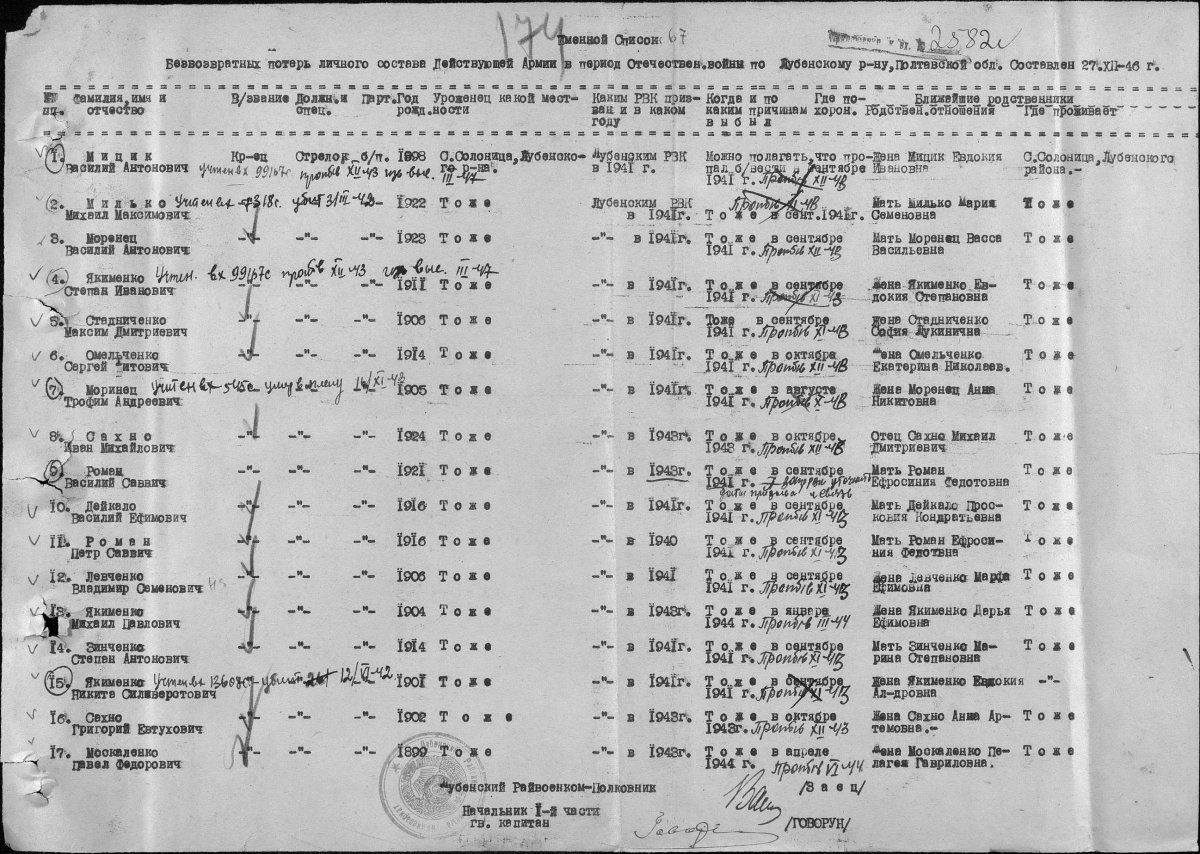 174
Именной Список 67
2582с
Безвозвратных потерь личного состава Действующей Армии в период Отечествен.войны по Лубенскому р-ну,Полтавской обл. Составлен 27.XII-46 г.
№№ Фамилия,имя и В/звание Должн.и Парт. Год Уроженец какой мест- Каким РВК приз- Когда и по Где по- Ближайшие родственники
пп. отчество спец. рожд. ности ван и в каком каким причинам хорон. Родствен.отношения Где проживает
году выбыл
1. Мицик Кр-ец Стрелок б/п. 1898 С.Солоница,Лубенско- Лубенским РВК Можно полагать,что про- Жена Мицик Евдокия С.Солоница,Лубенского
Василий Антонович учтен вх 99167с проп б/в XII-43 го р-на. в 1941 г. пал б/вести в сентябре Ивановна района.-
III-47 1941 г. Проп б/в XII-43
2. Милько Учтен вх 7318с. убит 31/III-42 1922 Тоже Лубенским РВК Проп б/в XI-43 Мать Милько Мария Тоже
Михаил Максимович в 1941г. Тоже в сент.1941г. Семеновна
3. Моренец -"- -"- -"- 1923 Тоже -"- в 1941г. Тоже в сентябре Мать Моренец Васса Тоже
Василий Антонович 1941 г. Проп б/в XII-43 Васильевна
4. Якименко Учтен. вх 99167с проп б/в XII-43 III-47
Степан Иванович 1911 Тоже -"- в 1941г. Тоже в сентябре Жена Якименко Ев- Тоже
1941 г. Проп б/в XI-43 докия Степановна
5. Стадниченко -"- -"- -"- 1906 Тоже -"- в 1941г. Тоже в сентябре Жена Стадниченко Тоже
Максим Дмитриевич 1941 г. Проп б/в XI-43 София Лукинична
6. Омельченко -"- -"- -"- 1914 Тоже -"- в 1941г. Тоже в октябре Жена Омельченко Тоже
Сергей Титович 1941 г. Проп б/в XII-43 Екатерина Николаев.
7. Моринец Учтен вх умер в плену 16/XI-43 1905 Тоже -"- в 1941г. Тоже в августе Жена Моренец Анна Тоже
Трофим Андреевич 1941 г. Проп б/в X-43 Никитовна
8. Сахно -"- -"- -"- 1924 Тоже -"- в 1943г. Тоже в октябре Отец Сахно Михаил Тоже
Иван Михайлович 1943 г. Проп б/в XII-43 Дмитриевич
9. Роман -"- -"- -"- 1921 Тоже -"- в 1943г. Тоже в сентябре Мать Роман Тоже
Василий Саввич 1941 г. Ефросиния Федотовна
даты призыва и связь
10. Дейкало -"- -"- -"- 1916 Тоже -"- в 1941г. Тоже в сентябре Мать Дейкало Прос- Тоже
Василий Ефимович 1941 г. Проп б/в XI-43 ковия Кондратьевна
11. Роман -"- -"- -"- 1916 Тоже -"- в 1940 Тоже в сентябре Мать Роман Ефроси- Тоже
Петр Саввич 1941 г. Проп б/в XI-43 ния Федотвна
12. Левченко -"- -"- -"- 1906 Тоже -"- в 1941 Тоже в сентябре Жена Левченко Марфа Тоже
Владимир Семенович 1941 г. Проп б/в XI-43 Ефимовна
13. Якименко -"- -"- -"- 1904 Тоже -"- в 1943г. Тоже в январе Жена Якименко Дарья Тоже
Михаил Павлович 1944 г. Проп б/в III-44 Ефимовна
14. Зинченко -"- -"- -"- 1914 Тоже -"- в 1941г. Тоже в сентябре Мать Зинченко Ма- Тоже
Степан Антонович 1941 г. Проп б/в XI-43 рина Степановна
15. Якименко Учтен вх убит 12/VI-42 1901 Тоже -"- в 1941г. Тоже в сентябре Жена Якименко Евдокия -"-
Никита Силиверстович 1941 г. Проп б/в XI-43 Ал-дровна
16. Сахно -"- -"- -"- 1902 Тоже -"- в 1943г. Тоже в октябре Жена Сахно Анна Ар- Тоже
Григорий Евтухович 1943г. Проп б/в XII-43 темовна.-
17. Москаленко -"- -"- -"- 1899 Тоже -"- в 1943г. Тоже в апреле Жена Москаленко Пе- Тоже
Павел Федорович 1944 г. Проп б/в VI-44 лагея Гавриловна.
Лубенский Райвоенком-Полковник /Заец/
Начальник 1-й части
гв. капитан /ГОВОРУН/